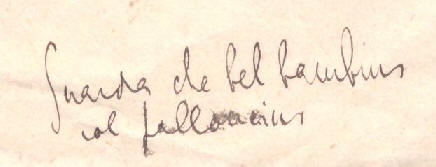 Guarda che bel bambino
col palloncino